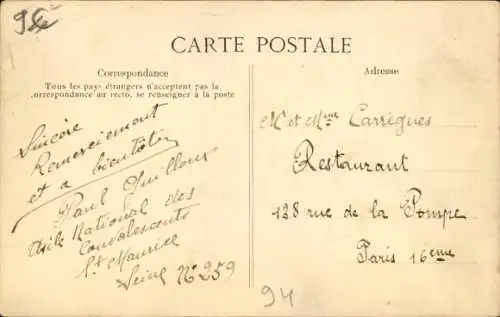 94
CARTE POSTALE
Correspondance
Tous les pays étrangers n'acceptent pas la
.orrespondance au recto, se renseigner à la poste
Sincère
Remerciement
et a bientôt
Paul Guilloux
Asile National des
Convalescents
St Maurice
Seine N° 259
Adresse
Mr et Mme Carrigues
Restaurant
128 rue de la Pompe
Paris 16eme
94